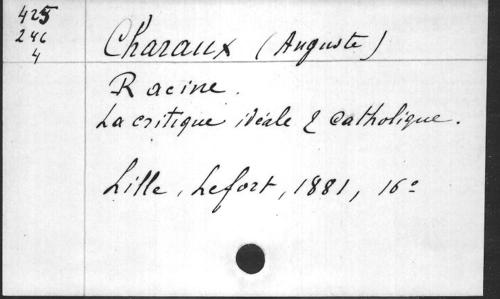 425
246
4
Charaux (Auguste)
Racine.
La critique idéale & catholique.
Lille, Lefort, 1881, 16º